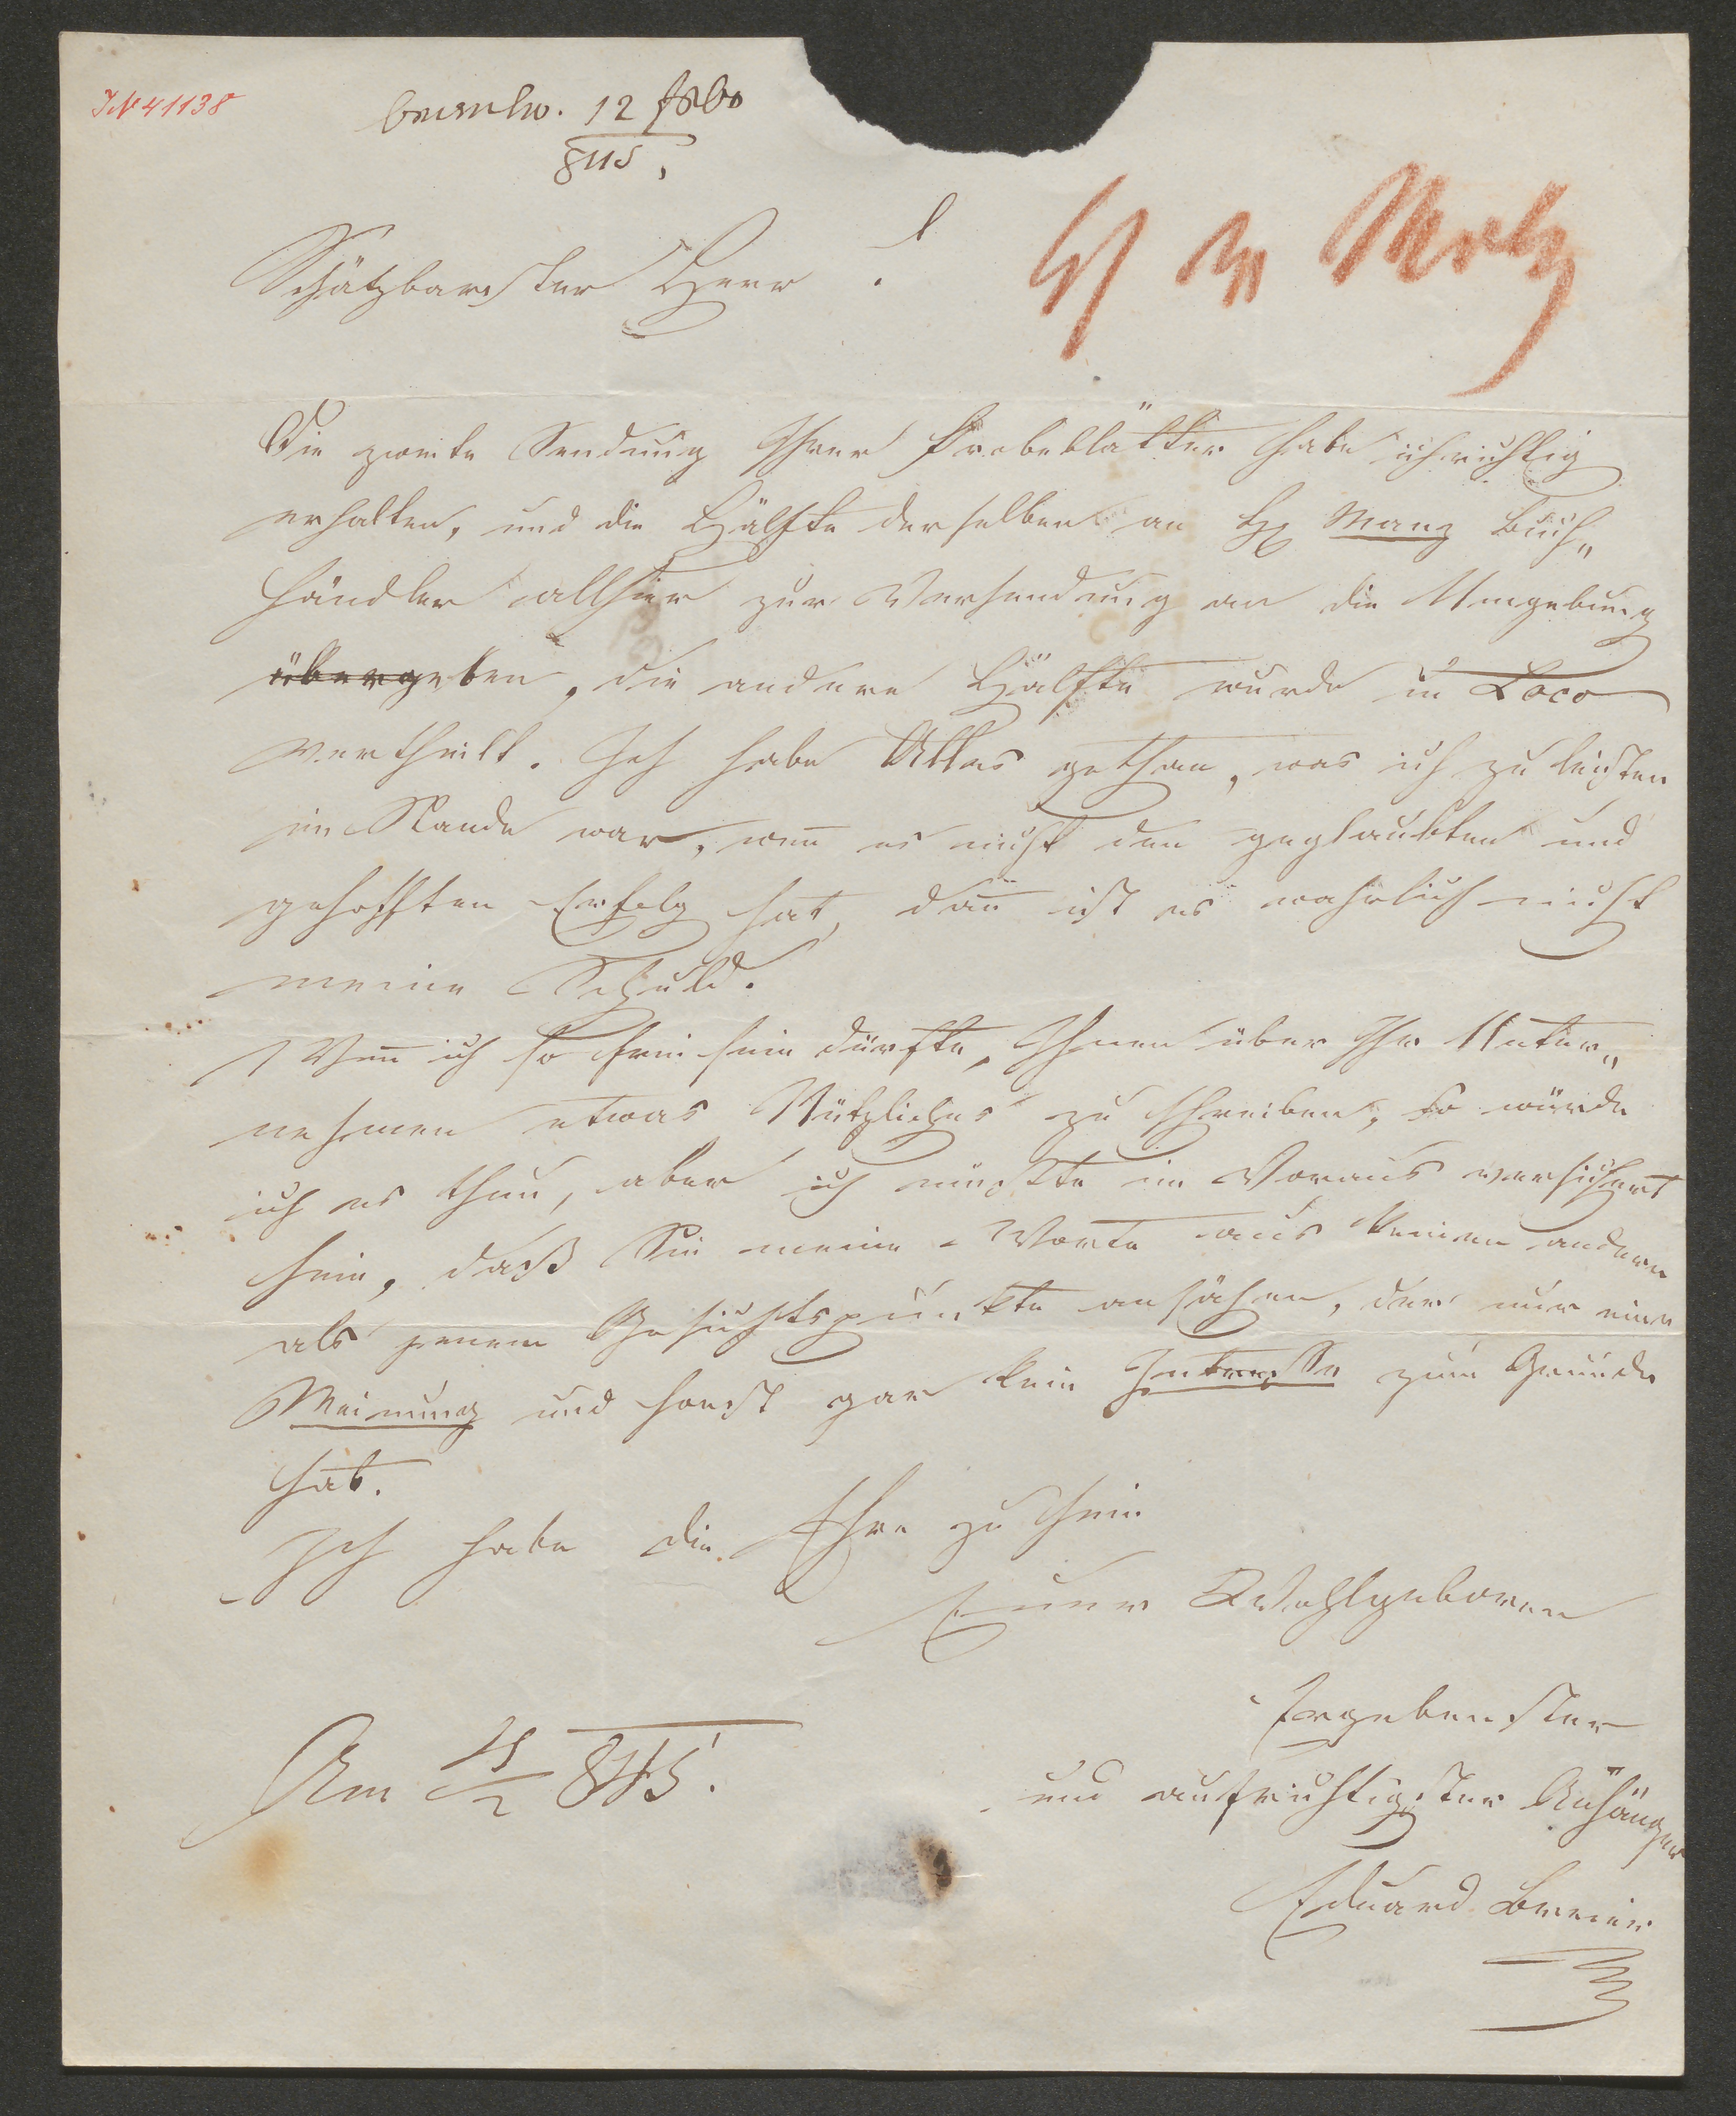 IN 41138
beantw. 12 Febr
845.
Schätzbarster Herr!
Die zweite Sendung Ihrer Probeblätter habe ich richtig
erhalten, und die Hälfte derselben an H Manz Buch„
händler allhier zur Versendung an die Umgebung
übergeben, die andere Hälfte wurde in Loco
vertheilt. Ich habe Alles gethan, was ich zu leisten
im Stande war, wen̅ es nicht den geglaubten und
gehofften Erfolg hat, dan̅ ist es wahrlich nicht
meine Schuld.
Wen̅ ich so frei sein dürfte, Ihnen über Ihr Unter„
nehmen etwas Nützliches zu schreiben, so würde
ich es thun, aber ich müßte im Voraus versichert
sein, daß Sie meine Worte aus keinem andern
als jenem Gesichtspunkte ansähen, der nur eine
Meinung und sonst gar kein Interesse zum Grunde
hat.
Ich habe die Ehre zu sein
Euer Wohlgeboren
Ergebenster
und aufrichtigster Anhänger
Eduard Breier
Am 11/2 845.